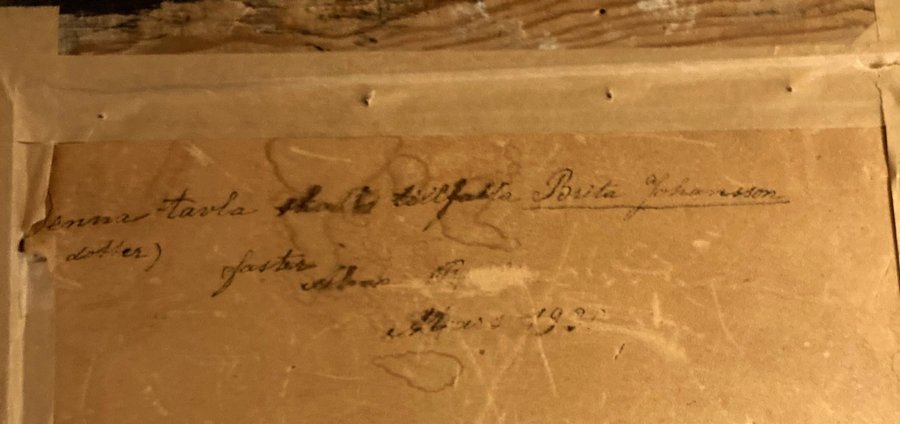 Denna tavla skall tillfalla Brita Johansson
dotter)
faster
Mars